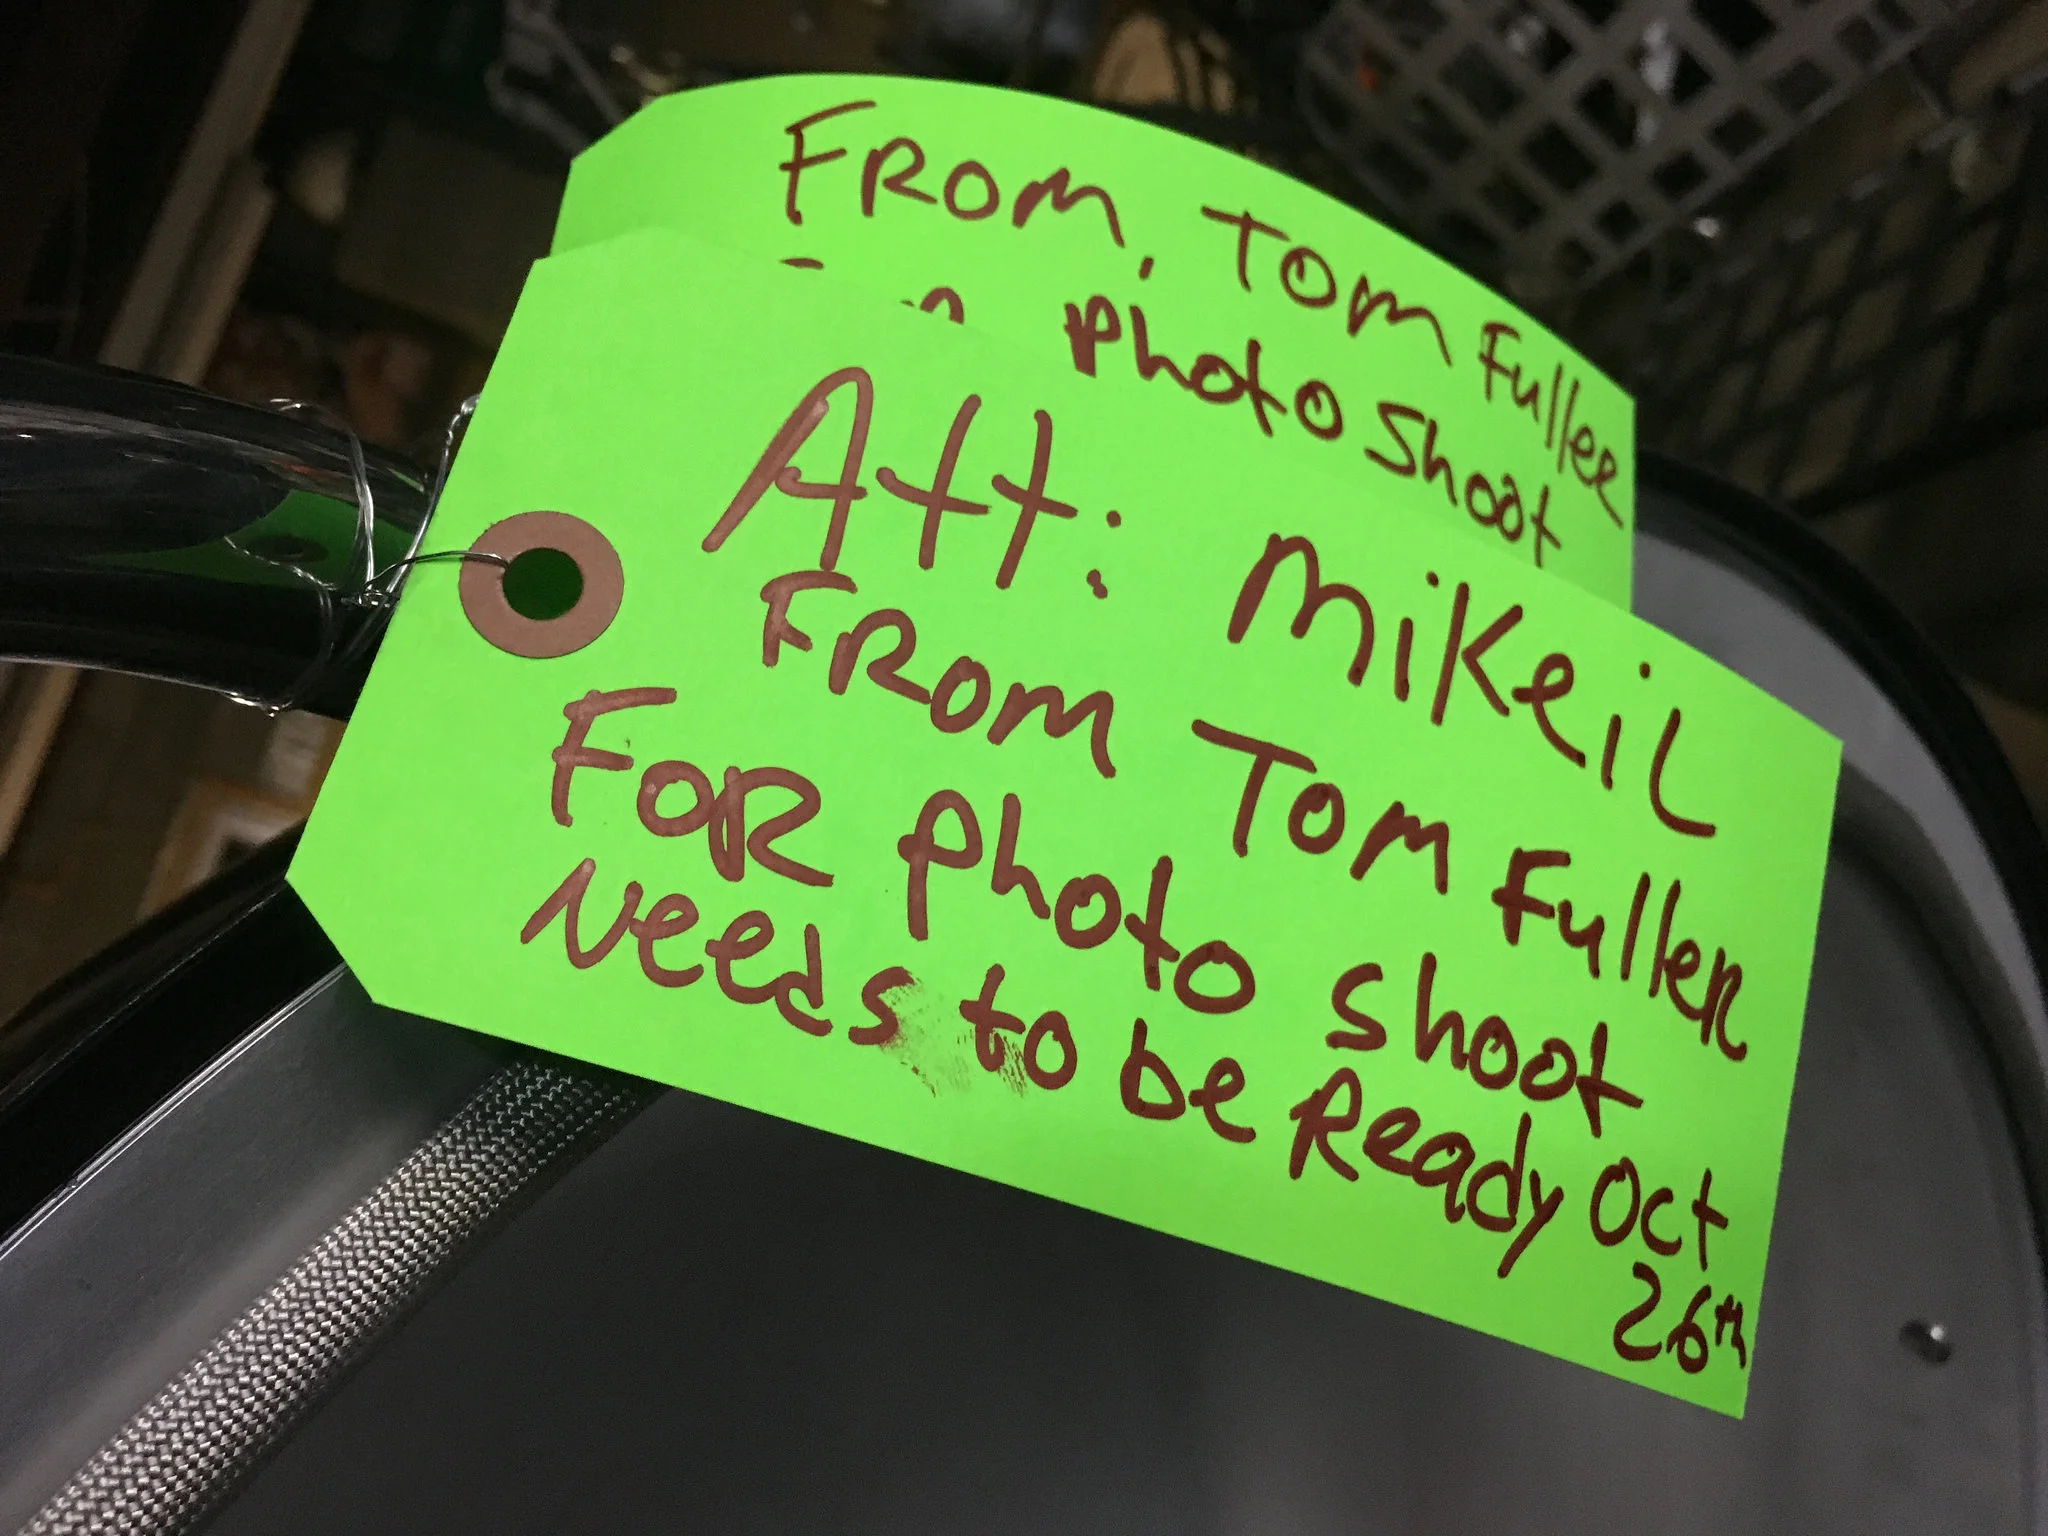 FROM, TOM Fuller
photo shoot
Att: MiKeiL
FROM TOM Fuller
FOR photo shoot
Needs to be Ready Oct
26th